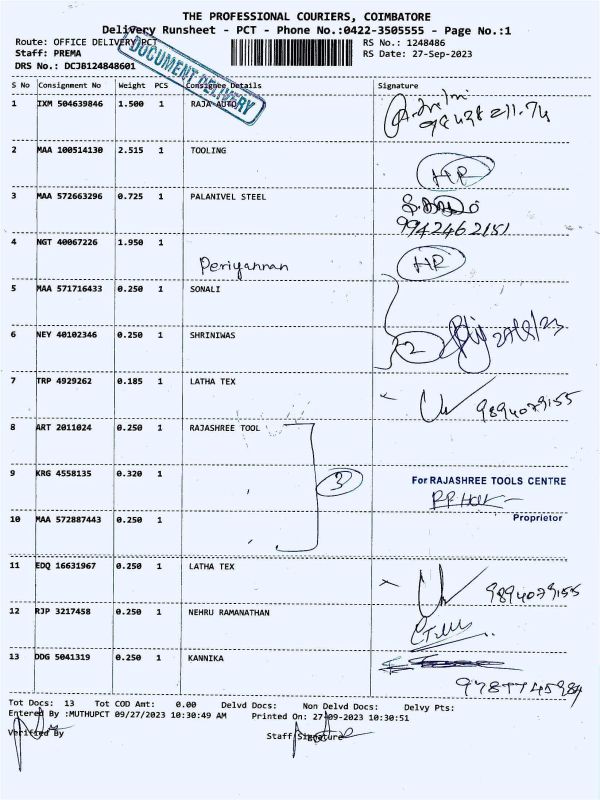 THE PROFESSIONAL COURIERS, COIMBATORE
Delivery Runsheet - PCT - Phone No.:0422-3505555 - Page No.:1
Route: OFFICE DELIVERY/PCT
RS No.: 1248486
Staff: PREMA
RS Date: 27-Sep-2023
DRS No.: DCJB124848601
DOCUMENT DELIVERY
S No Consignment No Weight PCS Consignee Details Signature
1 IXM 504639846 1.500 1 RAJA AUTO
2 MAA 100514130 2.515 1 TOOLING
HR
3 MAA 572663296 0.725 1 PALANIVEL STEEL
9942462151
4 NGT 40067226 1.950 1
Periyannan
HR
5 MAA 571716433 0.250 1 SONALI
6 NEY 40102346 0.250 1 SHRINIWAS
2
7 TRP 4929262 0.185 1 LATHA TEX
9894079155
8 ART 2011024 0.250 1 RAJASHREE TOOL
9 KRG 4558135 0.320 1
3
For RAJASHREE TOOLS CENTRE
10 MAA 572887443 0.250 1
Proprietor
11 EDQ 16631967 0.250 1 LATHA TEX
9894079155
12 RJP 3217458 0.250 1 NEHRU RAMANATHAN
13 DDG 5041319 0.250 1 KANNIKA
Tot Docs: 13 Tot COD Amt: 0.00 Delvd Docs: Non Delvd Docs: Delvy Pts:
Entered By :MUTHUPCT 09/27/2023 10:30:49 AM Printed On: 27-09-2023 10:30:51
Verified By
Staff Signature